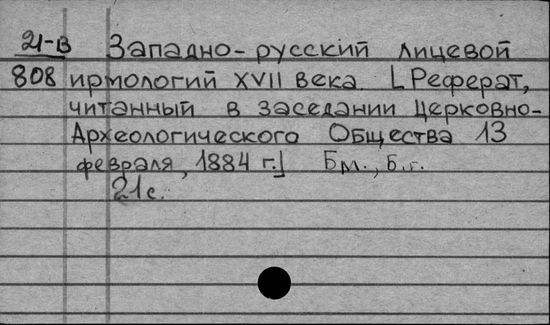 21-В Западно-русский лицевой
808 ирмологий XVII века. [Реферат,
читанный в заседании Церковно-
Археологического Общества 13
февраля, 1884 г.] Б.м., б.г.
21 с.